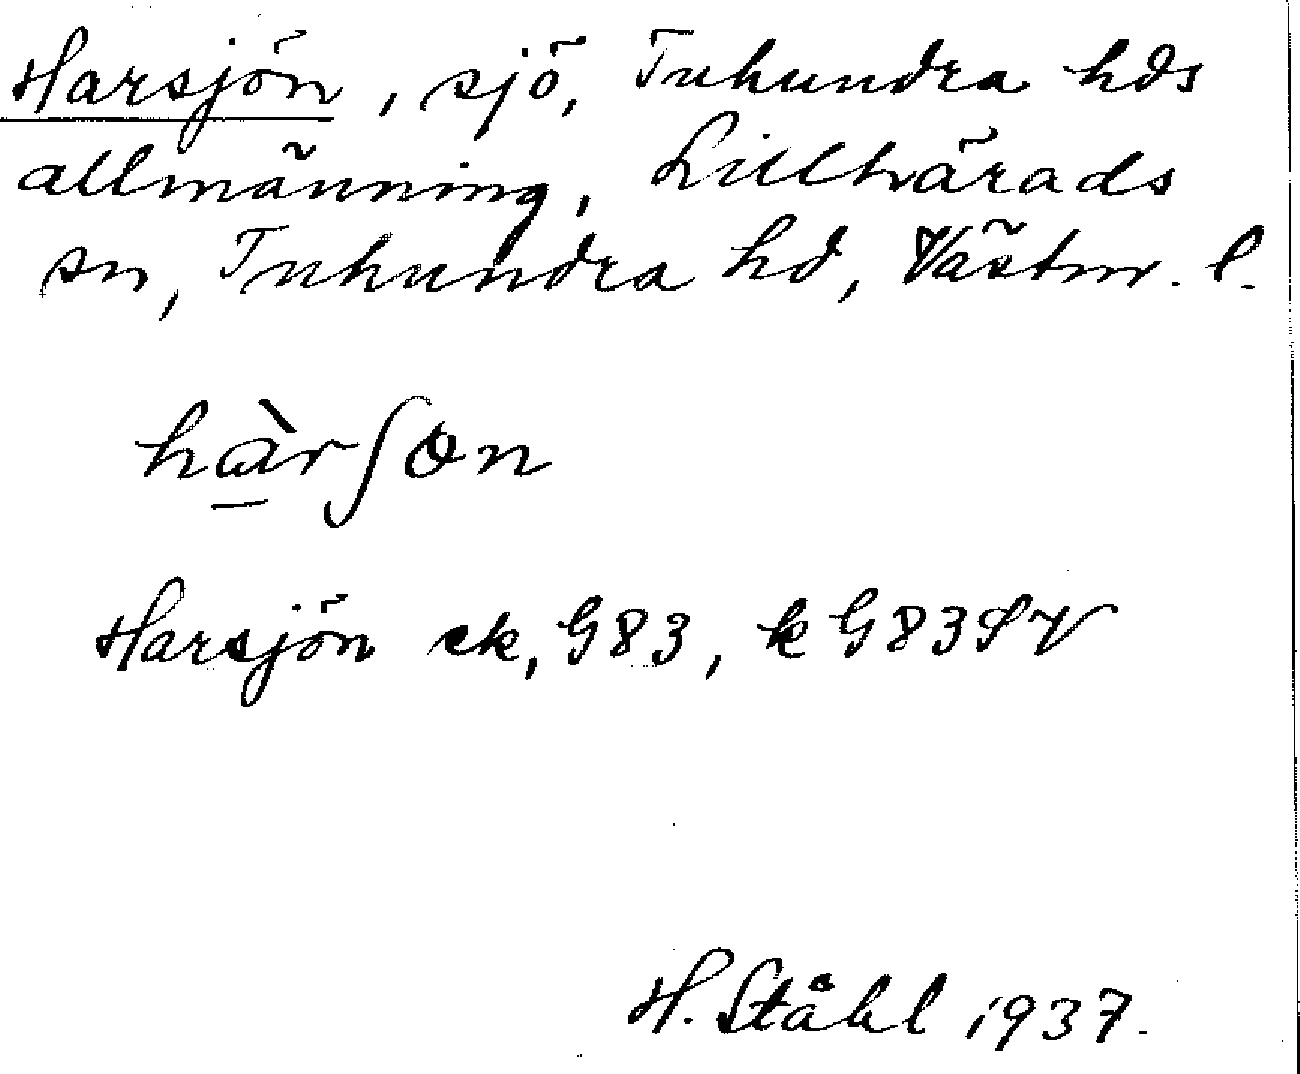 Harsjön, sjö, Tuhundra hds
allmänning, Lillhärads
sn, Tuhundra hd, Västm. l.
hàrʃon
Harsjön ek, G83, k G83SV
H. Ståhl 1937.